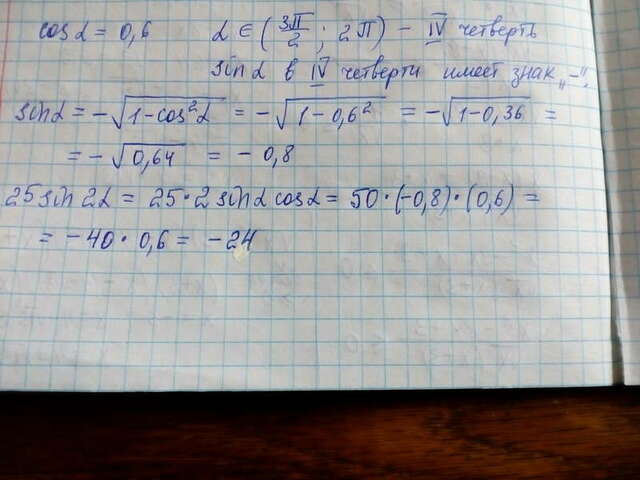 cos α = 0,6 α ∈ (3π/2 ; 2π) – IV четверть
sin α в IV четверти имеет знак „–".
sin α = –√(1–cos²α) = –√(1–0,6²) = –√(1–0,36) =
= –√(0,64) = –0,8
25 sin 2α = 25·2 sin α cos α = 50·(–0,8)·(0,6) =
= –40·0,6 = –24